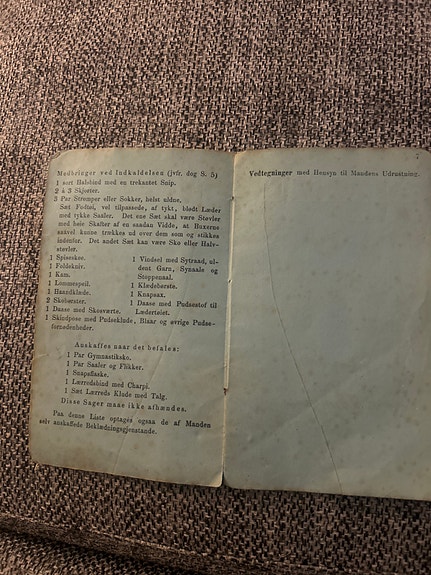 Medbringer ved Indkaldelsen (jvfr. dog S. 5)
1 sort Halsbind med en trekantet Snip.
2 à 3 Skjorter.
3 Par Strømper eller Sokker, helst uldne.
Sæt Fodtøi, vel tilpassede, af tykt, blødt Læder
med tykke Saaler. Det ene Sæt skal være Støvler
med høie Skafter af en saadan Vidde, at Buxerne
saavel kunne trækkes ud over dem som og stikkes
indenfor. Det andet Sæt kan være Sko eller Halv-
støvler.
1 Spiseskee.
1 Foldekniv.
1 Kam.
1 Lommespeil.
1 Haandklæde.
2 Skobørster.
1 Daase med Skosværte.
1 Skindpose med Pudseklude, Blaar og øvrige Pudse-
fornødenheder.
1 Vindsel med Sytraad, ul-
dent Garn, Synaale og
Stoppenaal.
1 Klædebørste.
1 Knapsax.
1 Daase med Pudsestof til
Lædertøiet.
Anskaffes naar det befales:
1 Par Gymnastiksko.
1 Par Saaler og Flikker.
1 Snapsflaske.
1 Lærredsbind med Charpi.
1 Sæt Lærreds Klude med Talg.
Disse Sager maae ikke afhændes.
Paa denne Liste optages ogsaa de af Manden
selv anskaffede Beklædningsgjenstande.
Vedtegninger med Hensyn til Mandens Udrustning.